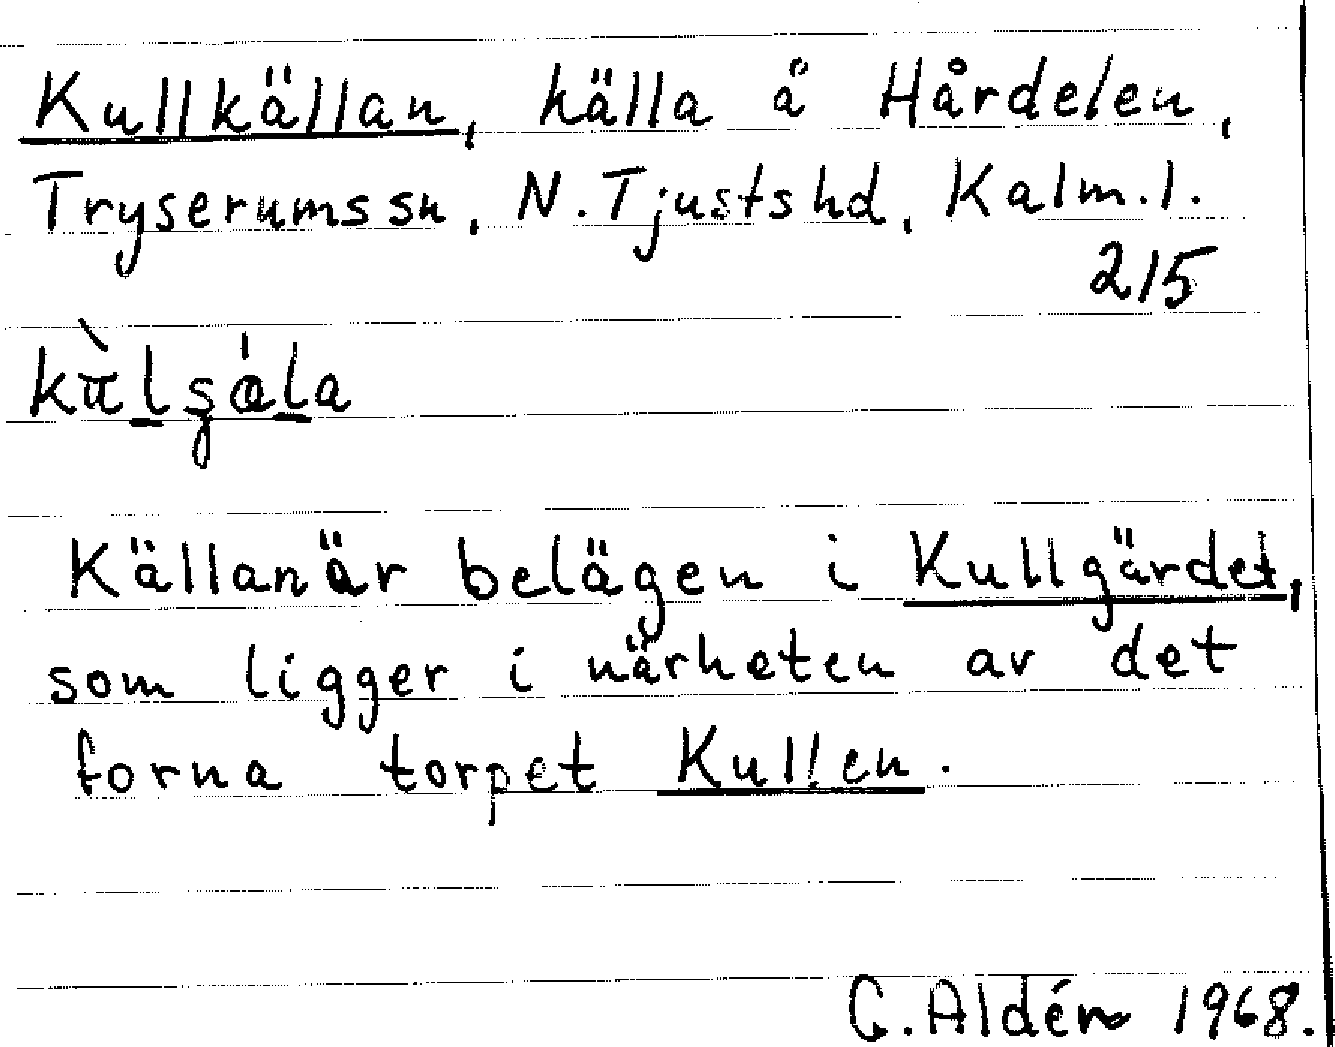 Kullkällan, källa å Hårdelen,
Tryserumssn, N. Tjustshd, Kalm.l.
215
Källan är belägen i Kullgärdet,
som ligger i närheten av det
forna torpet Kullen.
G. Aldén 1968.